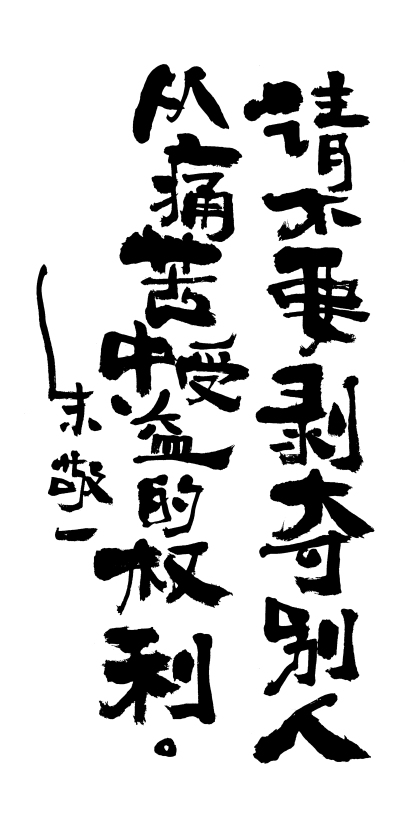 请不要剥夺别人
从痛苦中受益的权利。
朱敬一